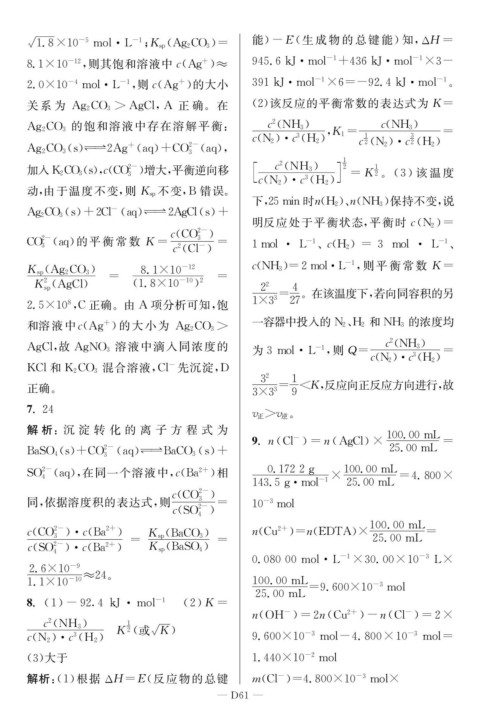 √1.8×10⁻⁵ mol·L⁻¹;Kₛₚ(Ag₂CO₃)=
8.1×10⁻¹²,则其饱和溶液中 c(Ag⁺)≈
2.0×10⁻⁴ mol·L⁻¹,则 c(Ag⁺)的大小
关系为 Ag₂CO₃>AgCl,A 正确。在
Ag₂CO₃ 的饱和溶液中存在溶解平衡:
Ag₂CO₃(s)⇌2Ag⁺(aq)+CO₃²⁻(aq),
加入K₂CO₃(s),c(CO₃²⁻)增大,平衡逆向移
动,由于温度不变,则 Kₛₚ不变,B 错误。
Ag₂CO₃(s)+2Cl⁻(aq)⇌2AgCl(s)+
CO₃²⁻(aq)的平衡常数 K=c(CO₃²⁻)/c²(Cl⁻)=
Kₛₚ(Ag₂CO₃)/K²ₛₚ(AgCl)=8.1×10⁻¹²/(1.8×10⁻¹⁰)²=
2.5×10⁸,C 正确。由 A 项分析可知,饱
和溶液中c(Ag⁺)的大小为 Ag₂CO₃>
AgCl,故 AgNO₃ 溶液中滴入同浓度的
KCl 和 K₂CO₃ 混合溶液,Cl⁻先沉淀,D
正确。
7. 24
解析:沉淀转化的离子方程式为
BaSO₄(s)+CO₃²⁻(aq)⇌BaCO₃(s)+
SO₄²⁻(aq),在同一个溶液中,c(Ba²⁺)相
同,依据溶度积的表达式,则c(CO₃²⁻)/c(SO₄²⁻)=
c(CO₃²⁻)·c(Ba²⁺)/c(SO₄²⁻)·c(Ba²⁺)=Kₛₚ(BaCO₃)/Kₛₚ(BaSO₄)=
2.6×10⁻⁹/1.1×10⁻¹⁰≈24。
8. (1)-92.4 kJ·mol⁻¹ (2)K=
c²(NH₃)/c(N₂)·c³(H₂) K^½(或√K)
(3)大于
解析:(1)根据 ΔH=E(反应物的总键
能)-E(生成物的总键能)知,ΔH=
945.6 kJ·mol⁻¹+436 kJ·mol⁻¹×3-
391 kJ·mol⁻¹×6=-92.4 kJ·mol⁻¹。
(2)该反应的平衡常数的表达式为 K=
c²(NH₃)/c(N₂)·c³(H₂),K₁=c(NH₃)/c^½(N₂)·c^(3/2)(H₂)=
[c²(NH₃)/c(N₂)·c³(H₂)]^½=K^½。(3)该温度
下,25 min时n(H₂)、n(NH₃)保持不变,说
明反应处于平衡状态,平衡时 c(N₂)=
1 mol·L⁻¹、c(H₂)=3 mol·L⁻¹、
c(NH₃)=2 mol·L⁻¹,则平衡常数 K=
2²/1×3³=4/27。在该温度下,若向同容积的另
一容器中投入的 N₂、H₂ 和 NH₃ 的浓度均
为 3 mol·L⁻¹,则 Q=c²(NH₃)/c(N₂)·c³(H₂)=
3²/3×3³=1/9<K,反应向正反应方向进行,故
v正>v逆。
9. n(Cl⁻)=n(AgCl)×100.00 mL/25.00 mL=
0.172 2 g/143.5 g·mol⁻¹×100.00 mL/25.00 mL=4.800×
10⁻³ mol
n(Cu²⁺)=n(EDTA)×100.00 mL/25.00 mL=
0.080 00 mol·L⁻¹×30.00×10⁻³ L×
100.00 mL/25.00 mL=9.600×10⁻³ mol
n(OH⁻)=2n(Cu²⁺)-n(Cl⁻)=2×
9.600×10⁻³ mol-4.800×10⁻³ mol=
1.440×10⁻² mol
m(Cl⁻)=4.800×10⁻³ mol×
— D61 —